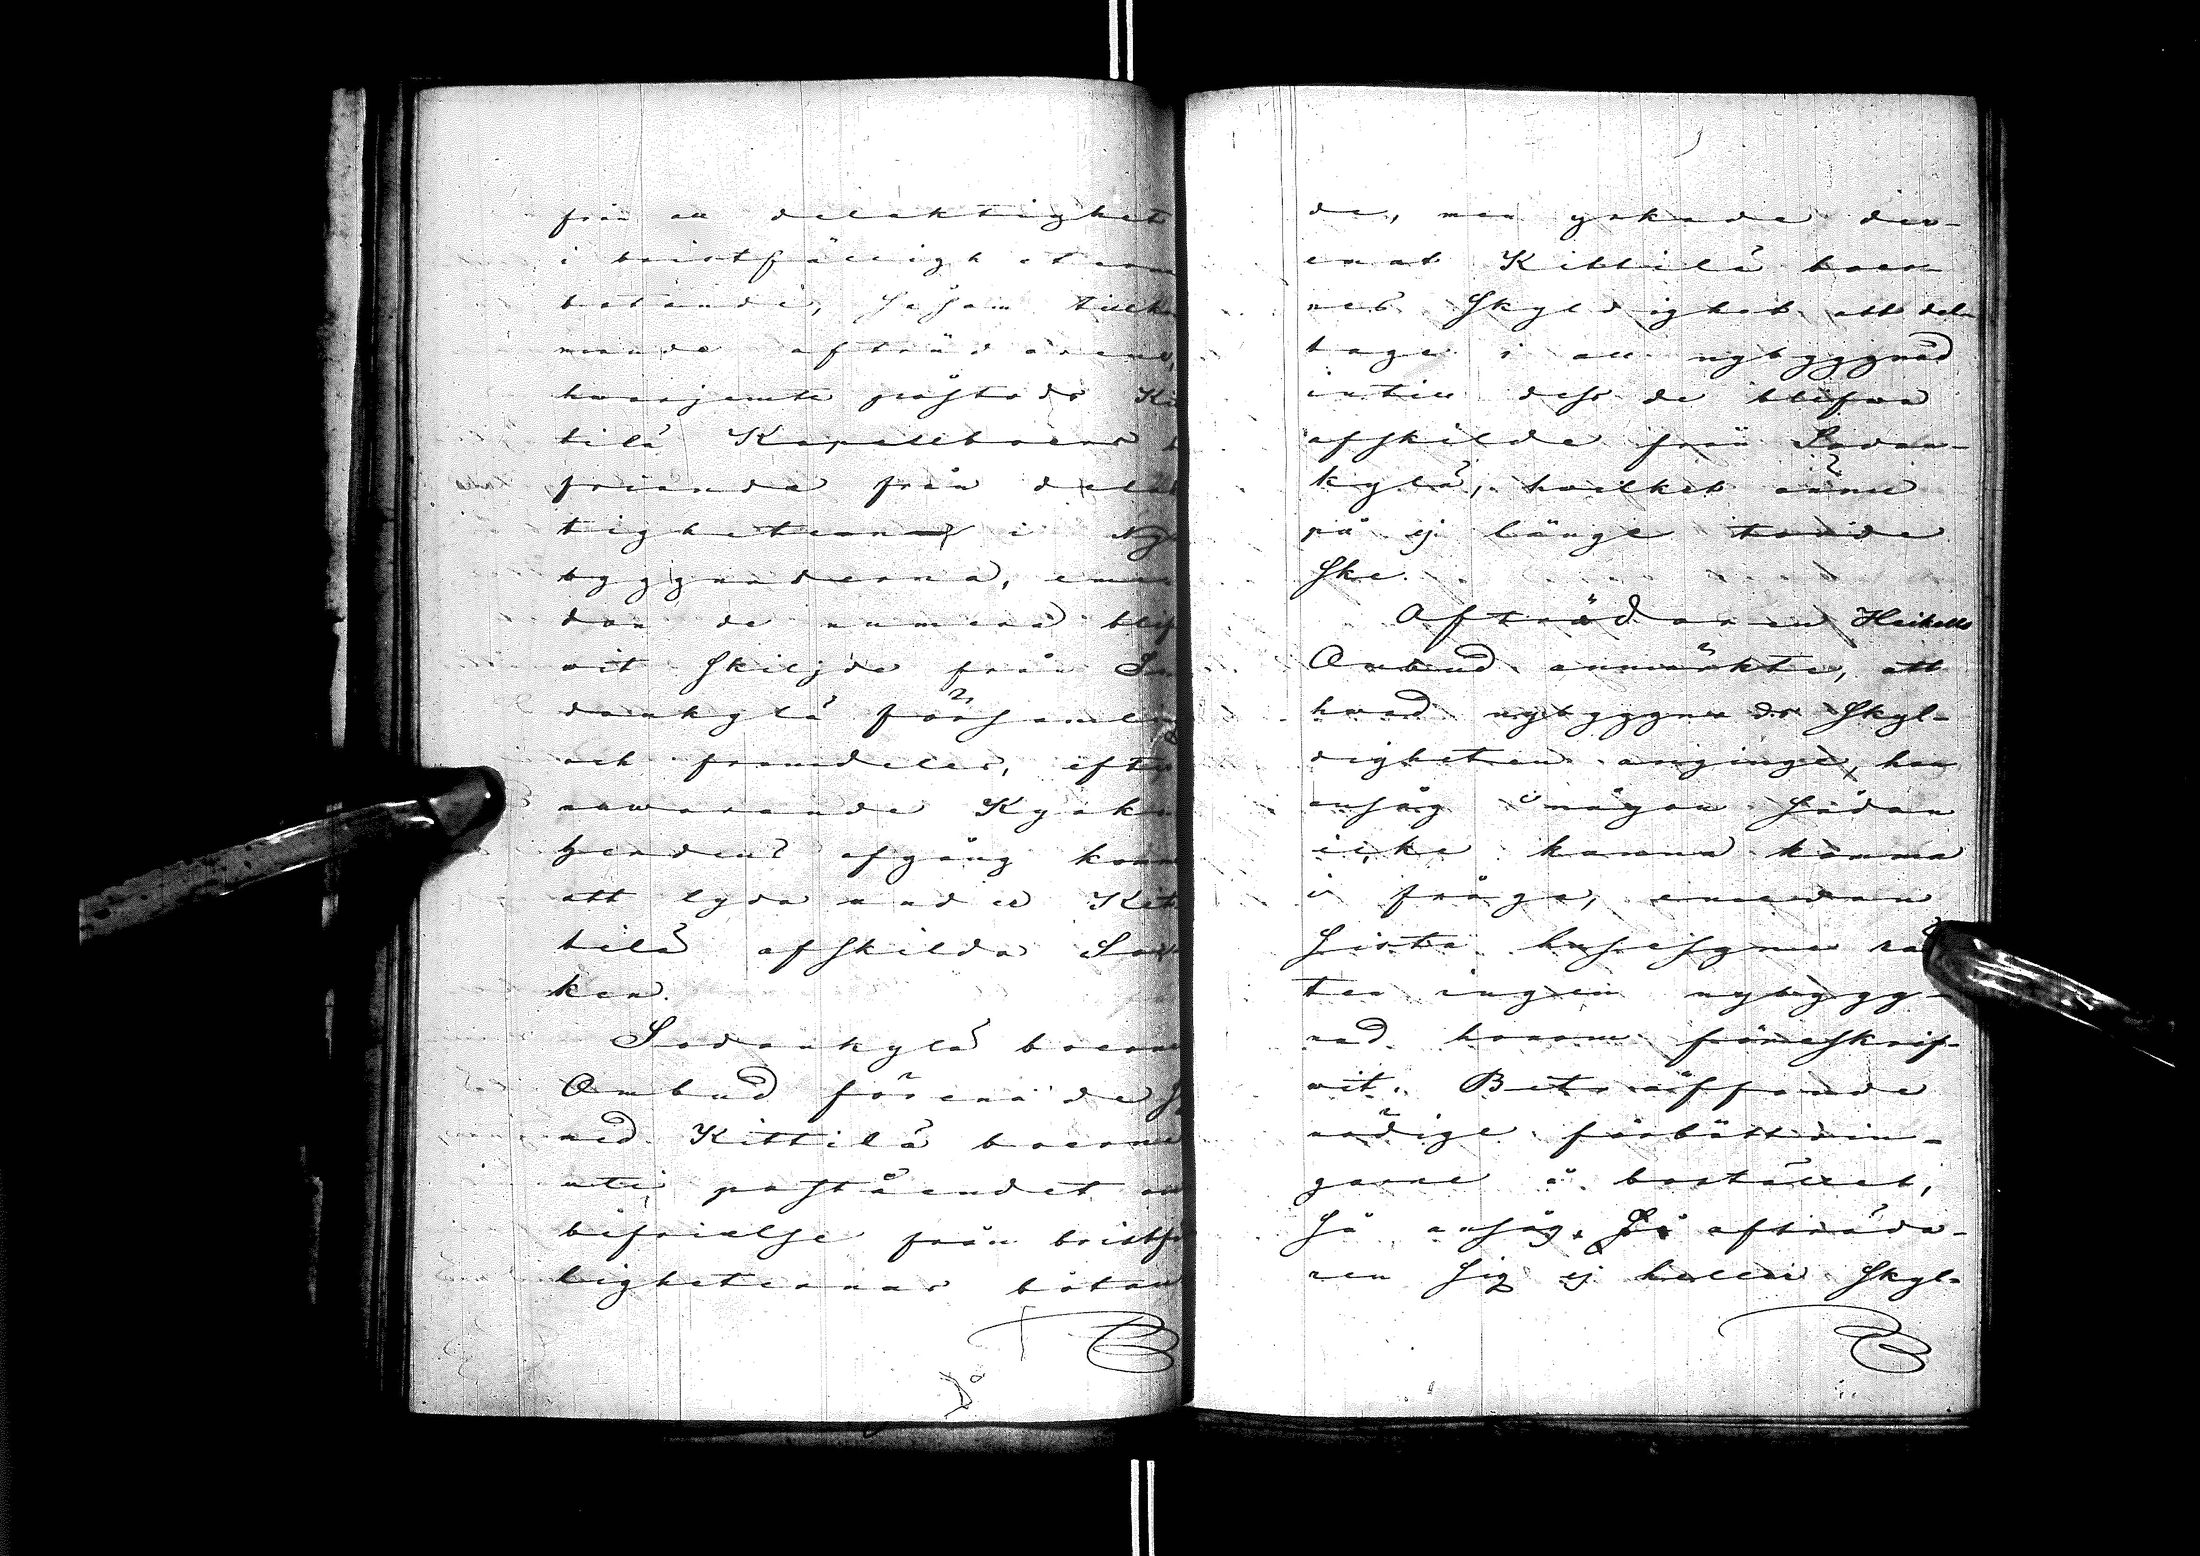 från all delaktighet
i bristfälligheternas
botande, såsom tillko
mande afträdarene,
hwarjemte påstods Kit
tilä Kapellboerne
friande från delak
tigheterna i Ny
byggnaderna, eme
dan de numera blif
vit skiljde från So
dankylä församling
och framdeles, efter
nuwarande Kyrko
herdens afgång komma
att lyda under Kit
tilä afskilda Soc
ken.
Sodankylä boerne
Ombud förenade sig
med Kittilä boerne
uti påståendet om
befrielse från bristfäl
ligheternas botan
de, men yrkade der-
emot Kittilä boer-
nes skyldighet att del-
taga i all nybyggnad
intill dess de blifwa
afskilde från Sodan-
kylä, hvilket ännu
på ej länge torde
ske.
Afträdaren Heikells
Ombud anmärkte, att
hvad nybyggnads skyl-
digheten anginge, han
ansåg någon sådan
icke kunna komma
i fråga, emedan
sista husesyne rät
ten ingen nybygg-
nad honom föreskrif-
vit. Beträffande
nödige förbättrin-
garne å bostället,
så ansåg afträda-
ren sig ej heller skyl-